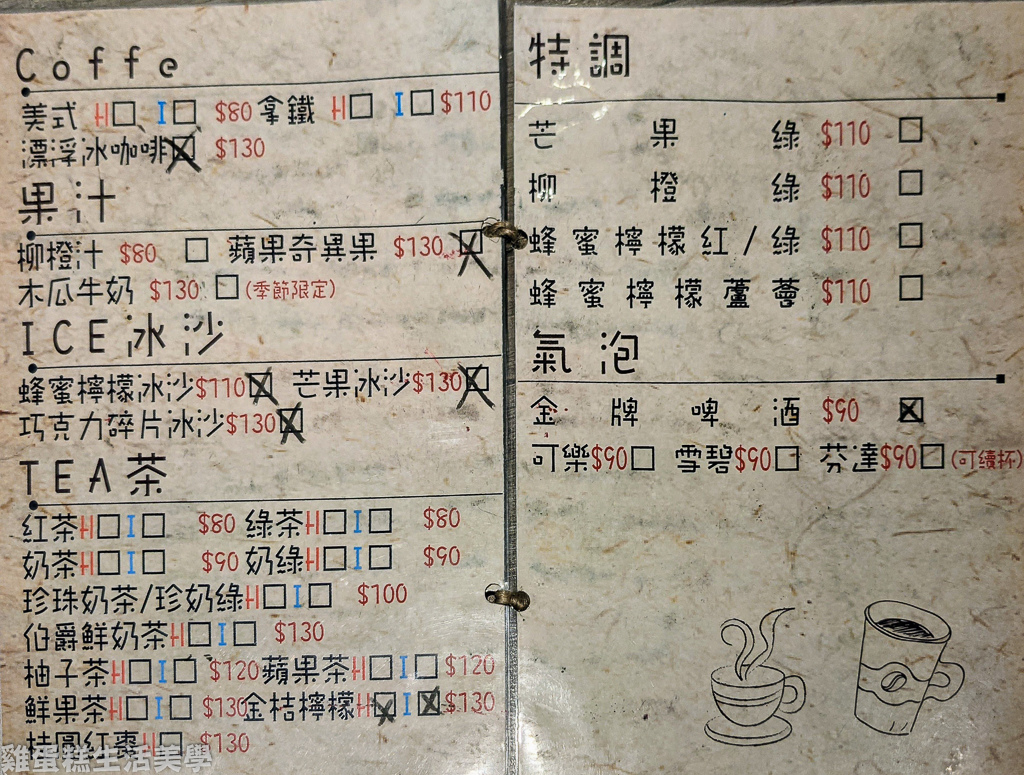 Coffe
美式 H□ I□ $80 拿鐵 H□ I□ $110
漂浮冰咖啡☒ $130
果汁
柳橙汁 $80 □ 蘋果奇異果 $130 ☒
木瓜牛奶 $130 □ (季節限定)
ICE冰沙
蜂蜜檸檬冰沙$110☒ 芒果冰沙$130☒
巧克力碎片冰沙$130☒
TEA茶
紅茶H□I□ $80 綠茶H□I□ $80
奶茶H□I□ $90 奶綠H□I□ $90
珍珠奶茶/珍奶綠H□I□ $100
伯爵鮮奶茶H□I□ $130
柚子茶H□I□ $120 蘋果茶H□I□ $120
鮮果茶H□I□ $130 金桔檸檬H☒I☒ $130
桂圓紅棗H□ $130
特調
芒果綠 $110 □
柳橙綠 $110 □
蜂蜜檸檬紅/綠 $110 □
蜂蜜檸檬蘆薈 $110 □
氣泡
金牌啤酒 $90 ☒
可樂$90□ 雪碧$90□ 芬達$90□(可續杯)
雞蛋糕生活美學